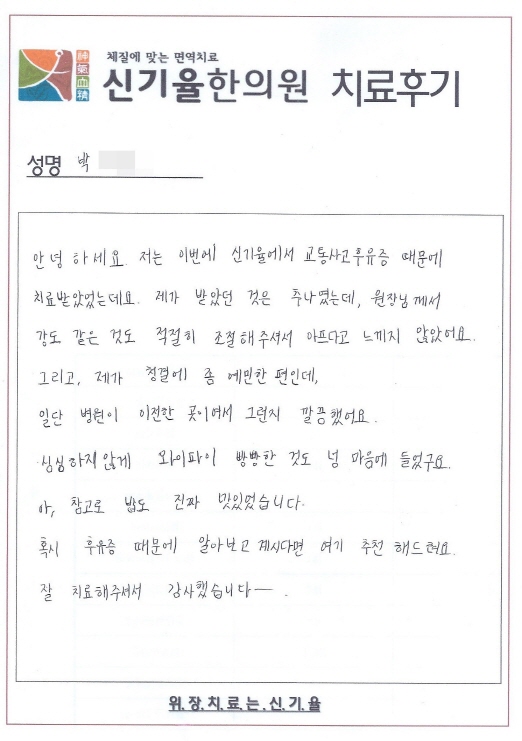 체질에 맞는 면역치료
신기율한의원 치료후기
神氣血精
성명 박
안녕하세요. 저는 이번에 신기율에서 교통사고후유증 때문에
치료받았었는데요. 제가 받았던 것은 추나였는데, 원장님께서
강도 같은 것도 적절히 조절해주셔서 아프다고 느끼지 않았어요.
그리고, 제가 청결에 좀 예민한 편인데,
일단 병원이 이전한 곳이여서 그런지 깔끔했어요.
심심하지않게 와이파이 빵빵한 것도 넘 마음에 들었구요.
아, 참고로 밥도 진짜 맛있었습니다.
혹시 후유증 때문에 알아보고 계시다면 여기 추천 해드려요.
잘 치료해주셔서 감사했습니다ㅡ.
위.장.치.료.는.신.기.율